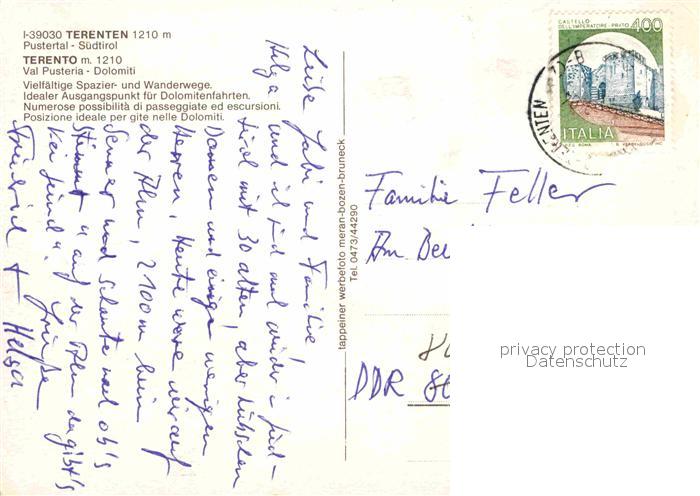 I-39030 TERENTEN 1210 m
Pustertal - Südtirol
TERENTO m. 1210
Val Pusteria - Dolomiti
Vielfältige Spazier- und Wanderwege.
Idealer Ausgangspunkt für Dolomitenfahrten.
Numerose possibilità di passeggiate ed escursioni.
Posizione ideale per gite nelle Dolomiti.
Liebe Gabi und Familie!
Helga und ich sind mal wieder in Süd-
tirol mit 30 alten, aber hübschen
Damen und einigen wenigen
Herren. Heute waren wir auf
der Alm, 2100 m beim
Senner und schauten mal ob's
stimmt "auf der Alm da gibt's
kei Sünd". Grüße
Friedrich + Helga
tappeiner werbefoto meran-bozen-bruneck
Tel. 0473/44290
CASTELLO
DELL'IMPERATORE - PRATO
400
ITALIA
ENTEN
Familie Feller
Am
DDR
privacy protection
Datenschutz